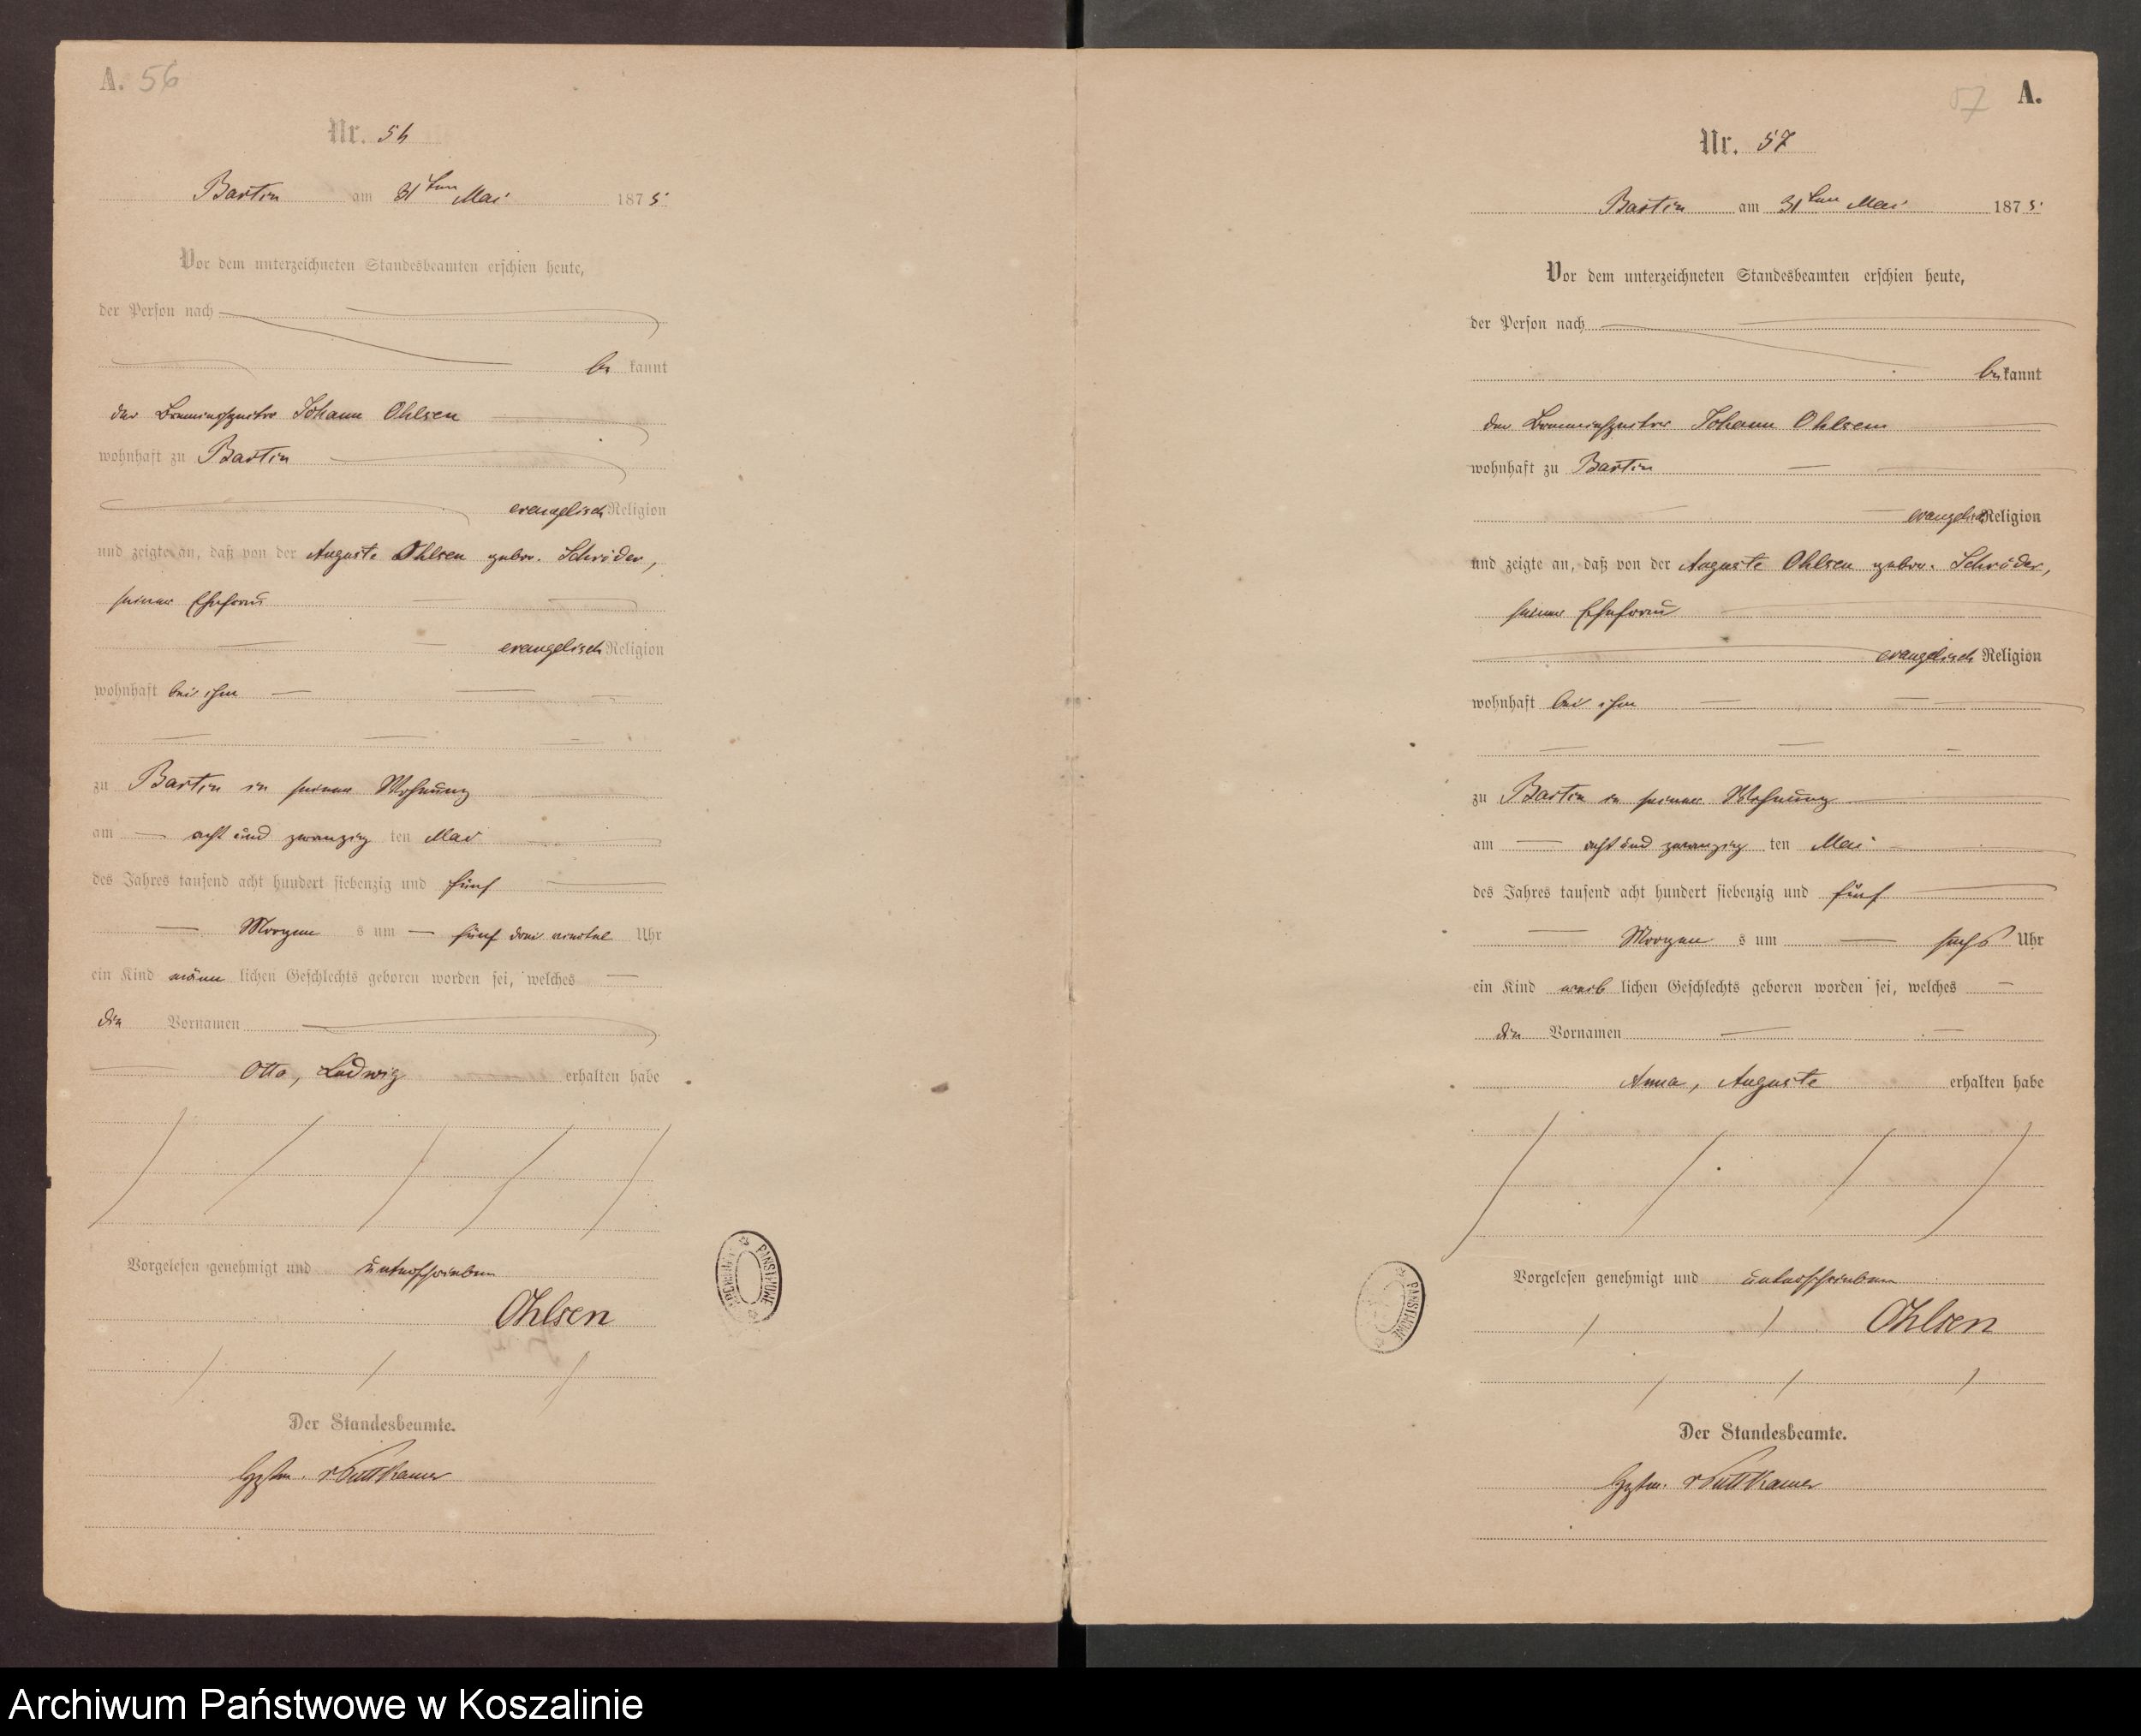 A. 56
Nr. 56
Bartin am 31ten Mai 1875.
Vor dem unterzeichneten Standesbeamten erschien heute,
der Person nach
be kannt
der Johann Ohlsen
wohnhaft zu Bartin
evangelisch Religion
und zeigte an, daß von der Auguste Ohlsen gebor. Schröder,
seiner Ehefrau
evangelisch Religion
wohnhaft bei ihm
zu Bartin in seiner Wohnung
am acht und zwanzig ten Mai
des Jahres tausend acht hundert siebenzig und fünf
Morgen s um fünf drei viertel Uhr
ein Kind männ lichen Geschlechts geboren worden sei, welches
die Vornamen
Otto, Ludwig erhalten habe
Vorgelesen genehmigt und unterschrieben
Ohlsen
Der Standesbeamte.
v Puttkamer
PAŃSTWOWE
57 A.
Nr. 57
Bartin am 31ten Mai 1875.
Vor dem unterzeichneten Standesbeamten erschien heute,
der Person nach
be kannt
der Johann Ohlsen
wohnhaft zu Bartin
evangelisch Religion
und zeigte an, daß von der Auguste Ohlsen gebor. Schröder,
seiner Ehefrau
evangelisch Religion
wohnhaft bei ihm
zu Bartin in seiner Wohnung
am acht und zwanzig ten Mai
des Jahres tausend acht hundert siebenzig und fünf
Morgen s um sechs Uhr
ein Kind weib lichen Geschlechts geboren worden sei, welches
die Vornamen
Anna, Auguste erhalten habe
Vorgelesen genehmigt und unterschrieben
Ohlsen
Der Standesbeamte.
v Puttkamer
PAŃSTWOWE
Archiwum Państwowe w Koszalinie